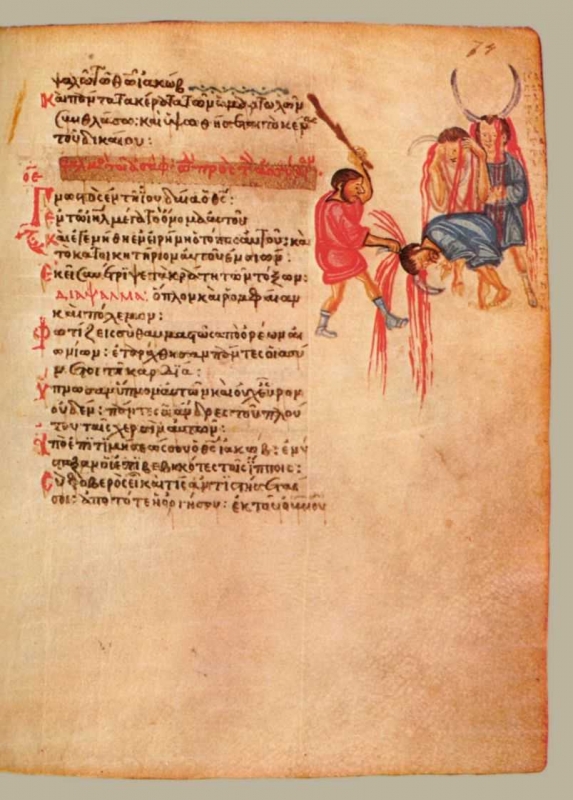 ψαλῶ τῷ θῶ ϊακώβ
Και πάντα τα κέρατα των ἁμαρτωλῶν
συνθλάσω: και ὑψωθήσεται το κέρας
του δικαίου:
οε
Γνωστὸς ἐν τῆ ϊουδαία ὁ θς:
Εν τῶ ιηλ μέγα το ὄνομα αυτου
Και ἐγενήθη ἐν εἰρήνη ὁ τόπος αυτου: και
το κατοικητήριον αυτου ἐν σιών:
Εκει συνέτριψε τα κράτη τῶν τόξων:
ΔΙΑΨΑΛΜΑ: ὅπλον και ρομφαίαν
και πόλεμον:
Φωτίζεις συ θαυμαστῶς ἀπο ὀρέων αι
ωνίων: ἐταράχθησαν πάντες οἱ ασύ
νετοι τῆ καρδία:
Υπνωσαν ὕπνον αυτῶν και ουχ εὗρον
ουδεν: πάντες οἱ ἄνδρες του πλού
του ταις χερσιν αυτων:
Απο ἐπιτιμήσεώς σου ὁ θς ϊακώβ: ἐνύ
σταξαν οἱ ἐπιβεβηκότες τοις ἵπποις:
Συ φοβερος εἶ και τις αντιστήσεται
σοι: ἀπο τότε ἡ ὀργή σου: ἐκ του οὐνου